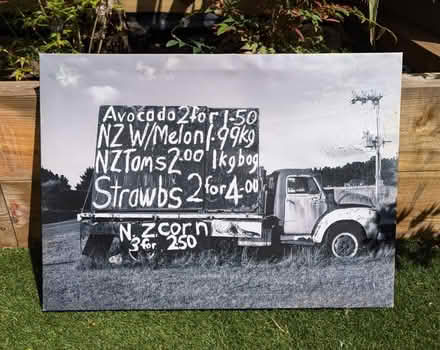 Avocado 2 for 1-50
NZ W/Melon 1.99kg
NZ Toms 2.00 1kg bag
Strawbs 2 for 4-00
N.Z corn
3 for 250